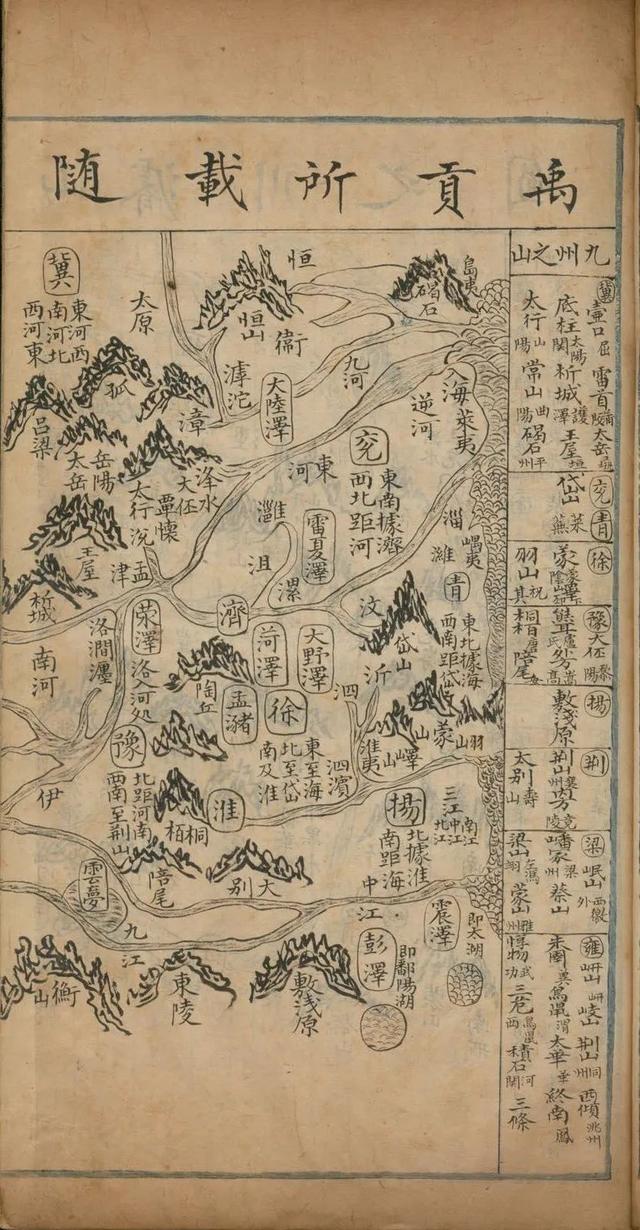 禹貢所載隨
九州之山
冀
壺口
屈
雷首
太岳
底柱
析城
王屋
太行
山陽
常山
曲陽
碣石
兗
青
岱山
萊蕪
徐
蒙
羽山
祝其
豫
大伾
桐
陪尾
揚
敷淺原
荊
荊山
大別
梁
岷山
嶓冢
蔡山
梁山
蒙山
雍
岍山
岐山
荊山
西傾
洮州
朱圉
鳥鼠
渭
太華
華
終南
惇物
武功
三危
積石
三條
島夷
碣石
恒
恒山
衛
太原
冀
東河西
南河北
西河東
狐
呂梁
太岳
岳陽
滹沱
漳
大陸澤
九河
逆河
入海
萊夷
東河
兗
東南據濟
西北距河
洚水
大伾
覃懷
太行
王屋
析城
孟津
南河
雷夏澤
沮
漯
濟
淄
濰
嵎夷
青
東北據海
西南距岱
汶
岱山
沂
洛
澗
瀍
滎澤
洛入河处
陶丘
菏澤
大野澤
孟豬
泗
徐
東至海
北至岱
南及淮
泗濱
淮夷
嶧山
蒙山
羽山
豫
北距河南
西南至荊山
伊
桐柏
淮
陪尾
大别
揚
北據淮
南距海
三江
南江
中江
北江
雲夢
九江
中江
彭澤
即鄱陽湖
震澤
即太湖
衡山
東陵
敷淺原